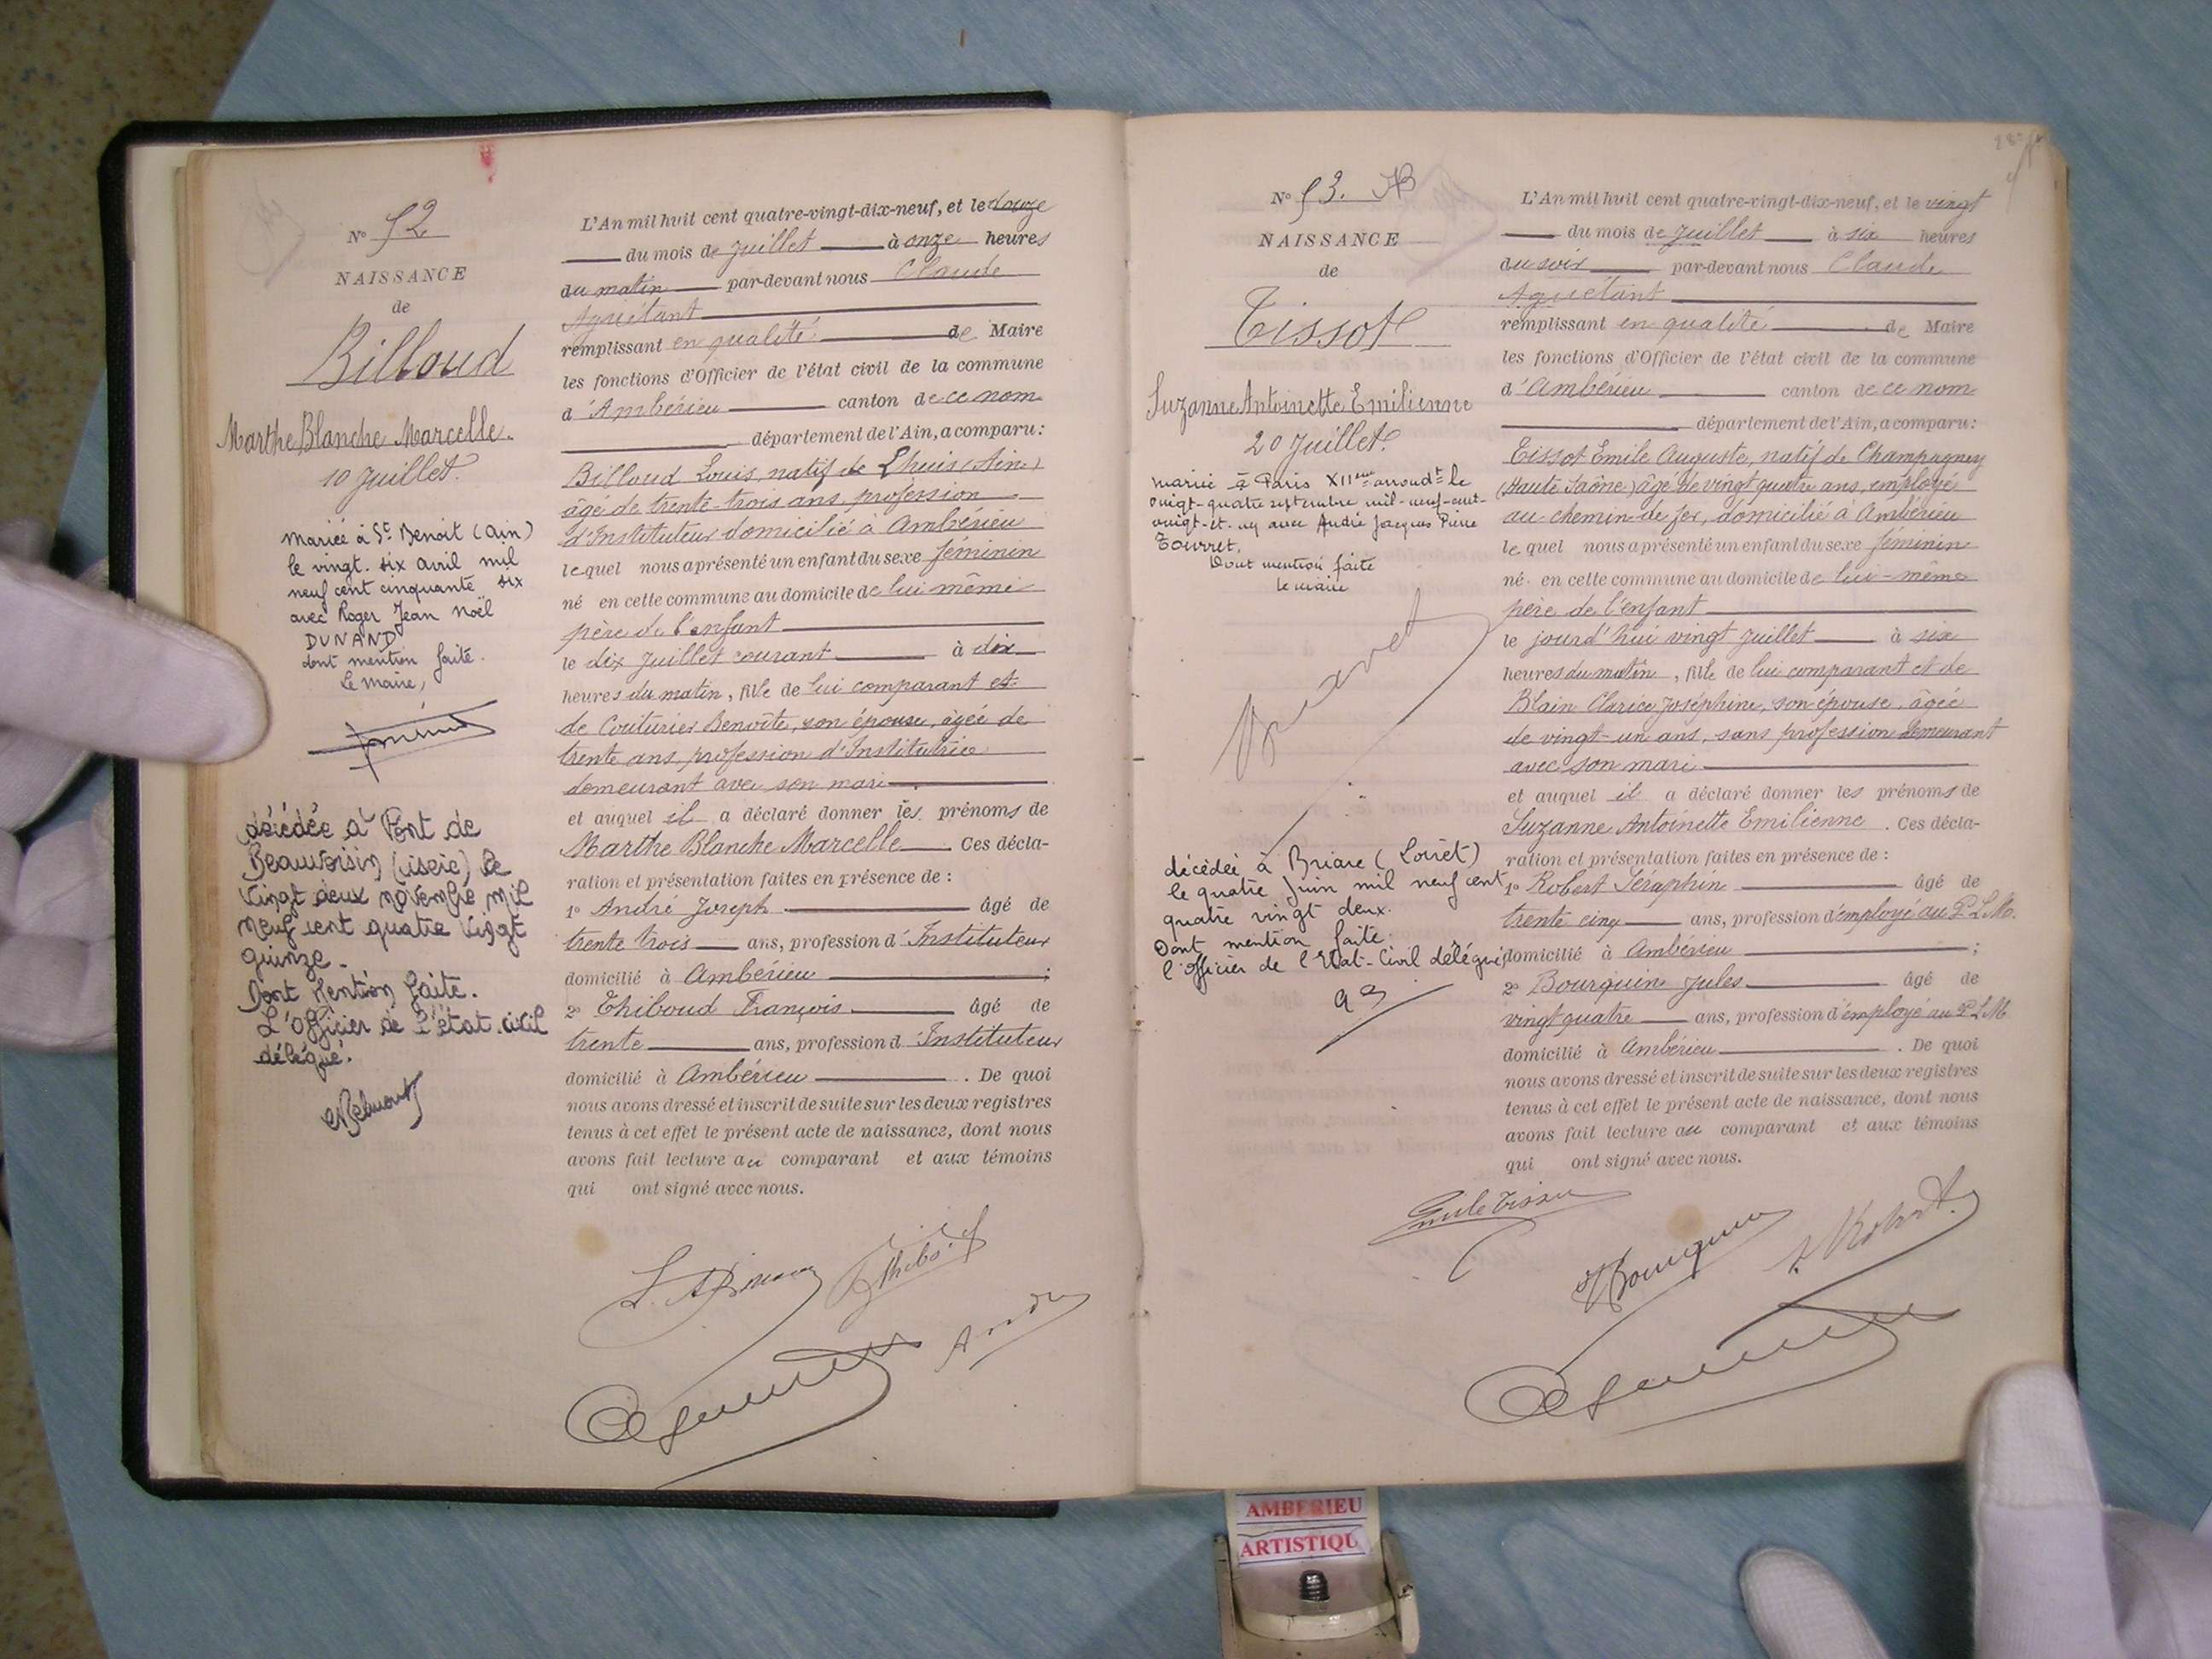 N° 52
NAISSANCE
de
Billoud
Marthe Blanche Marcelle.
10 Juillet.
mariée à St Benoit (Ain)
le vingt. six avril mil
neuf cent cinquante six
avec Roger Jean Noël
DUNAND
dont mention faite.
Le Maire,
décédée à Pont de
Beauvoisin (isère) le
vingt deux novembre mil
neuf cent quatre vingt
quinze.
Dont mention faite.
L'officier de l'état civil
délégué.
L'An mil huit cent quatre-vingt-dix-neuf, et le douze
du mois de Juillet à onze heures
du matin par-devant nous Claude
Aguétant
remplissant en qualité de Maire
les fonctions d'Officier de l'état civil de la commune
d'Ambérieu canton de ce nom
département de l'Ain, a comparu :
Billoud Louis, natif de Lhuis (Ain)
âgé de trente-trois ans, profession
d'Instituteur domicilié à Ambérieu
lequel nous a présenté un enfant du sexe féminin
né en cette commune au domicile de lui même
père de l'enfant
le dix Juillet courant à dix
heures du matin, fille de lui comparant et
de Couturier Benoîte, son épouse, âgée de
trente ans, profession d'Institutrice
demeurant avec son mari
et auquel il a déclaré donner les prénoms de
Marthe Blanche Marcelle Ces décla-
ration et présentation faites en présence de :
1° André Joseph âgé de
trente trois ans, profession d'Instituteur
domicilié à Ambérieu ;
2° Thiboud François âgé de
trente ans, profession d'Instituteur
domicilié à Ambérieu . De quoi
nous avons dressé et inscrit de suite sur les deux registres
tenus à cet effet le présent acte de naissance, dont nous
avons fait lecture au comparant et aux témoins
qui ont signé avec nous.
N° 53.
NAISSANCE
de
Tissot
Suzanne Antoinette Emilienne
20 Juillet.
mariée à Paris XIIme arroudt le
vingt-quatre septembre mil-neuf-cent-
vingt-et-un avec André Jacques Pierre
Tourret.
Dont mention faite
le maire
décédée à Briare (Loiret)
le quatre Juin mil neuf cent
quatre vingt deux.
Dont mention faite.
l'officier de l'Etat-Civil délégué
L'An mil huit cent quatre-vingt-dix-neuf, et le vingt
du mois de Juillet à six heures
du soir par-devant nous Claude
Aguétant
remplissant en qualité de Maire
les fonctions d'Officier de l'état civil de la commune
d'Ambérieu canton de ce nom
département de l'Ain, a comparu :
Tissot Emile Auguste, natif de Champagney
(Haute Saône) âgé de vingt quatre ans, employé
au chemin de fer, domicilié à Ambérieu
lequel nous a présenté un enfant du sexe féminin
né en cette commune au domicile de lui-même
père de l'enfant
le jourd'hui vingt Juillet à six
heures du matin, fille de lui comparant et de
Blain Clarice Joséphine, son épouse, âgée
de vingt-un ans, sans profession demeurant
avec son mari
et auquel il a déclaré donner les prénoms de
Suzanne Antoinette Emilienne . Ces décla-
ration et présentation faites en présence de :
1° Robert Séraphin âgé de
trente cinq ans, profession d'employé au P.L.M.
domicilié à Ambérieu ;
2° Bourquin Jules âgé de
vingt quatre ans, profession d'employé au P L M
domicilié à Ambérieu . De quoi
nous avons dressé et inscrit de suite sur les deux registres
tenus à cet effet le présent acte de naissance, dont nous
avons fait lecture au comparant et aux témoins
qui ont signé avec nous.
AMBERIEU
ARTISTIQU